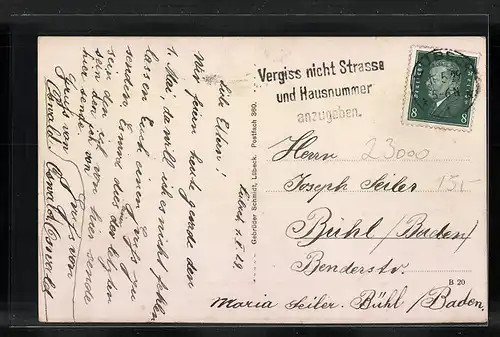 Liebe Eltern!
Lübeck, 1.5.29.
Wir feiern heute gerade den
1. Mai, da will ich es nicht fehlen
lassen Euch einen Gruß zu
senden. Es wird dies der letzte
sein den ich von hier sende
Gruss von
Oswald
Gebrüder Schmidt, Lübeck. Postfach 860.
Vergiss nicht Strasse
und Hausnummer
anzugeben.
8 8
Herrn 23000
Joseph Seiler 15,-
Bühl/(Baden)
Benderstr.
B 20
Maria Seiler. Bühl/Baden.